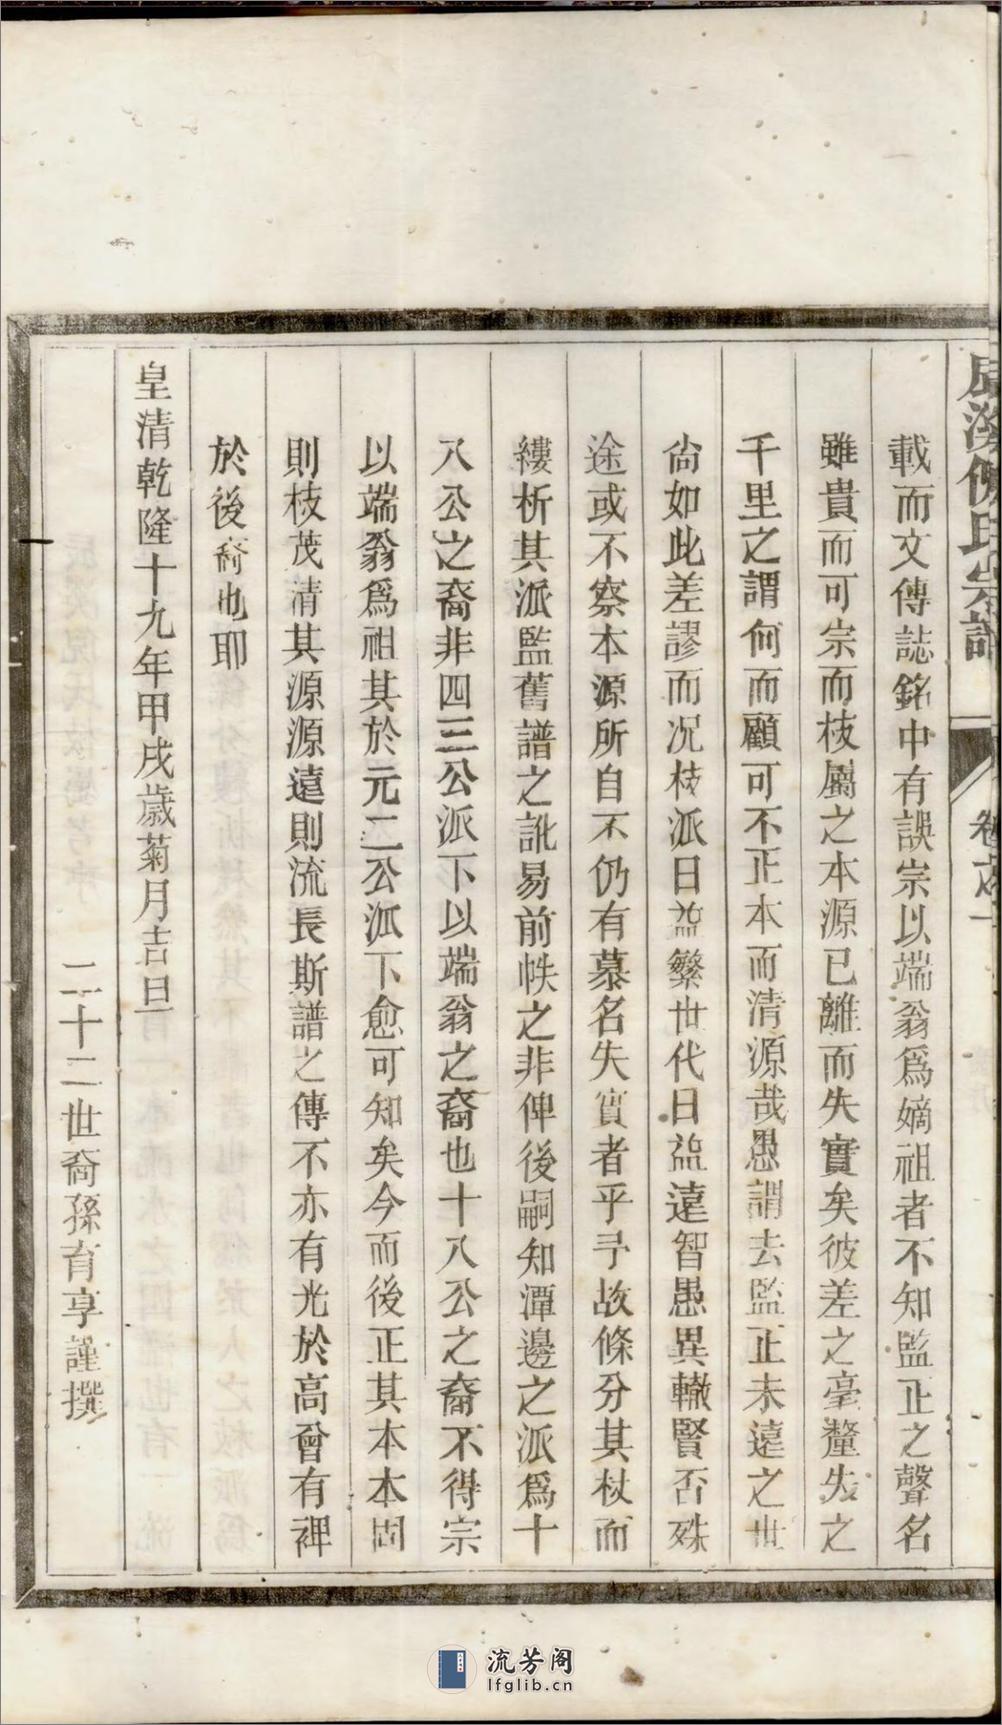 載而文傳誌銘中有誤宗以端翁爲嫡祖者不知監正之聲名
雖貴而可宗而枝屬之本源已離而失實矣彼差之毫釐失之
千里之謂何而顧可不正本而清源哉愚謂去監正未遠之世
尙如此差謬而况枝派日益繁世代日益遠智愚異轍賢否殊
途或不察本源所自不仍有慕名失實者乎予故條分其杖而
縷析其派監舊譜之訛易前帙之非俾後嗣知潭邊之派爲十
八公之裔非四三公派下以端翁之裔也十八公之裔不得宗
以端翁爲祖其於元二公派下愈可知矣今而後正其本本固
則枝茂清其源源遠則流長斯譜之傳不亦有光於高曾有裨
於後裔也耶
皇清乾隆十九年甲戌歲菊月吉旦
二十二世裔孫育享謹撰
流芳阁
lfglib.cn